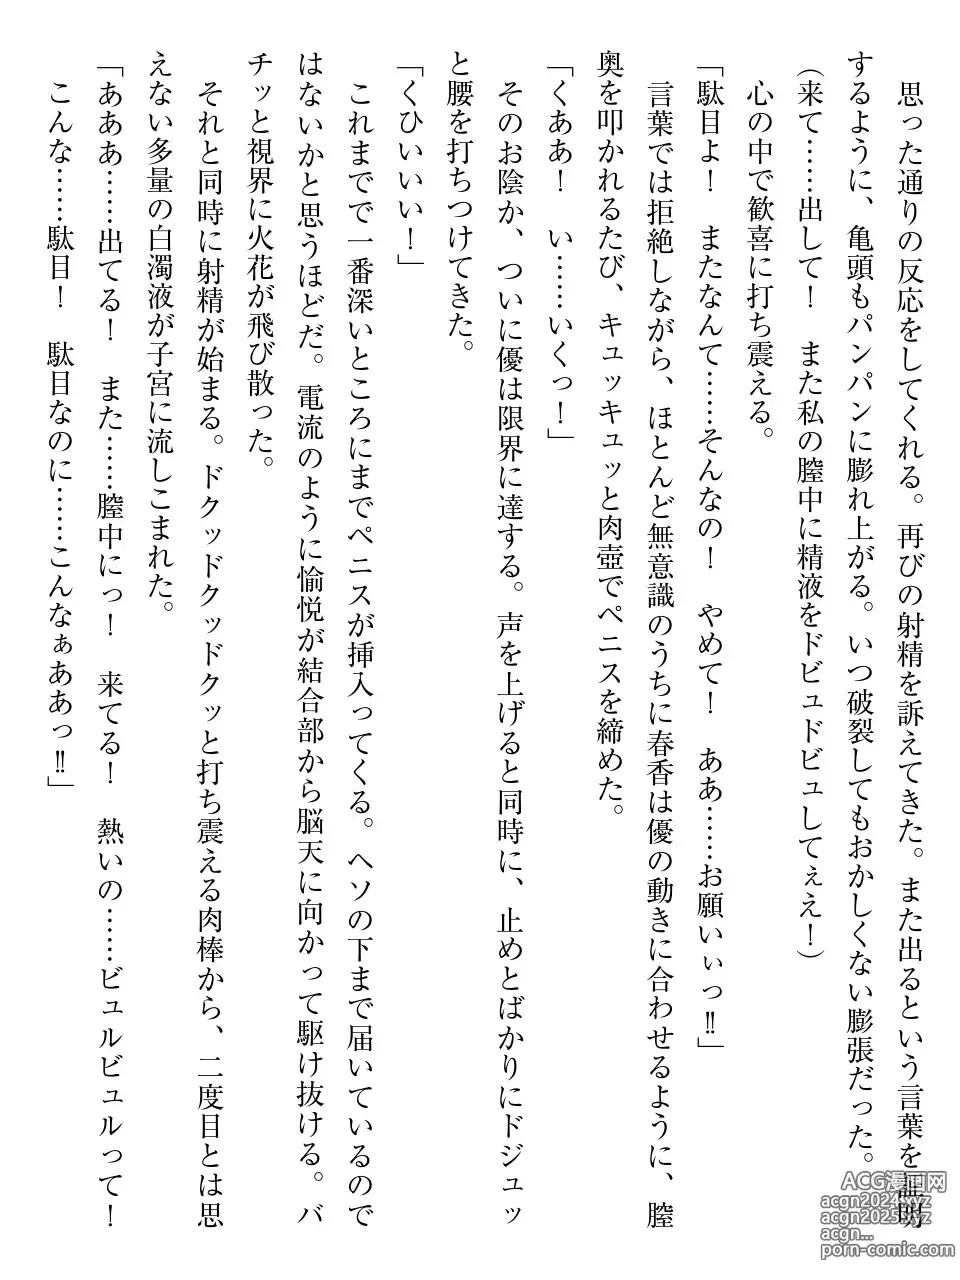 思った通りの反応をしてくれる。再びの射精を訴えてきた。また出るという言葉を証明
するように、亀頭もパンパンに膨れ上がる。いつ破裂してもおかしくない膨張だった。
（来て……出して！　また私の膣中に精液をドビュドビュしてぇえ！）
心の中で歓喜に打ち震える。
「駄目よ！　またなんて……そんなの！　やめて！　ああ……お願いぃっ‼」
言葉では拒絶しながら、ほとんど無意識のうちに春香は優の動きに合わせるように、膣
奥を叩かれるたび、キュッキュッと肉壺でペニスを締めた。
「くああ！　い……いくっ！」
そのお陰か、ついに優は限界に達する。声を上げると同時に、止めとばかりにドジュッ
と腰を打ちつけてきた。
「くひいいい！」
これまでで一番深いところにまでペニスが挿入ってくる。ヘソの下まで届いているので
はないかと思うほどだ。電流のように愉悦が結合部から脳天に向かって駆け抜ける。バ
チッと視界に火花が飛び散った。
それと同時に射精が始まる。ドクッドクッドクッと打ち震える肉棒から、二度目とは思
えない多量の白濁液が子宮に流しこまれた。
「あああ……出てる！　また……膣中にっ！　来てる！　熱いの……ビュルビュルって！
こんな……駄目！　駄目なのに……こんなぁああっ‼」
ACG漫画网
acgn2024.xyz
acgn2025.xyz
acgn...
porn-comic.com